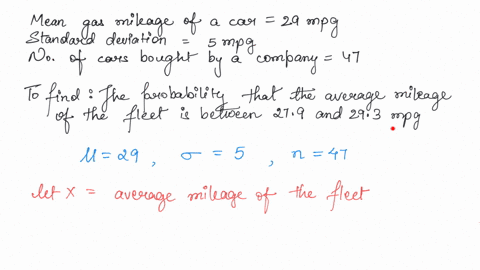 Mean gas mileage of a car = 29 mpg
Standard deviation = 5 mpg
No. of cars bought by a company = 47
To find : The probability that the average mileage
of the fleet is between 27.9 and 29.3 mpg
μ = 29 , σ = 5 , n = 47
let X = average mileage of the fleet